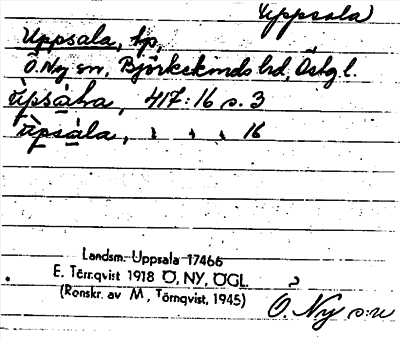 Uppsala
Uppsala, hp,
Ö. Ny sn, Björkekinds hd, Östg l.
ùpsàla, 417:16 s. 3
ùpsàla, " " " 16
Landsm. Uppsala 17466
E. Törnqvist 1918 Ö, NY, ÖGL.
(Renskr. av M. Törnqvist, 1945)
Ö. Ny sn